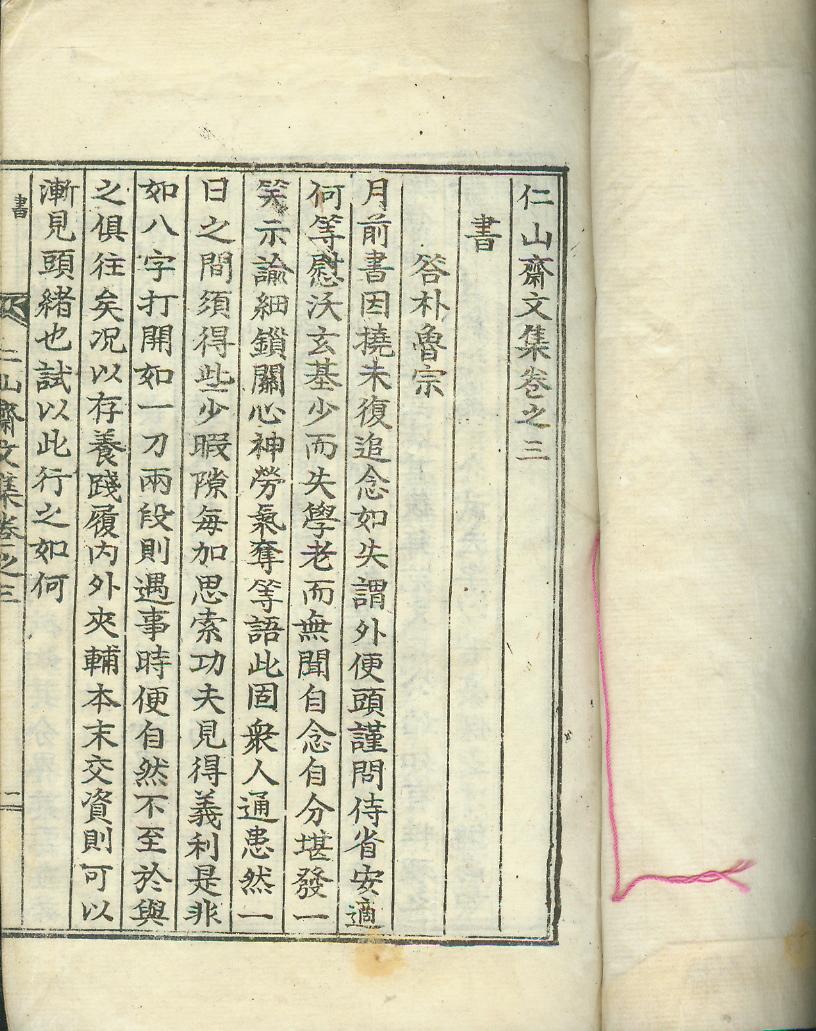 仁山齋文集卷之三
書
答朴魯宗
月前書因撓未復追念如失謂外便頭謹問侍省安適
何等慰沃玄基少而失學老而無聞自念自分堪發一
笑示諭細鎖關心神勞氣奪等語此固衆人通患然一
日之間須得些少暇隙每加思索功夫見得義利是非
如八字打開如一刀兩段則遇事時便自然不至於與
之俱往矣况以存養踐履內外夾輔本末交資則可以
漸見頭緖也試以此行之如何
書
仁山齋文集卷之三